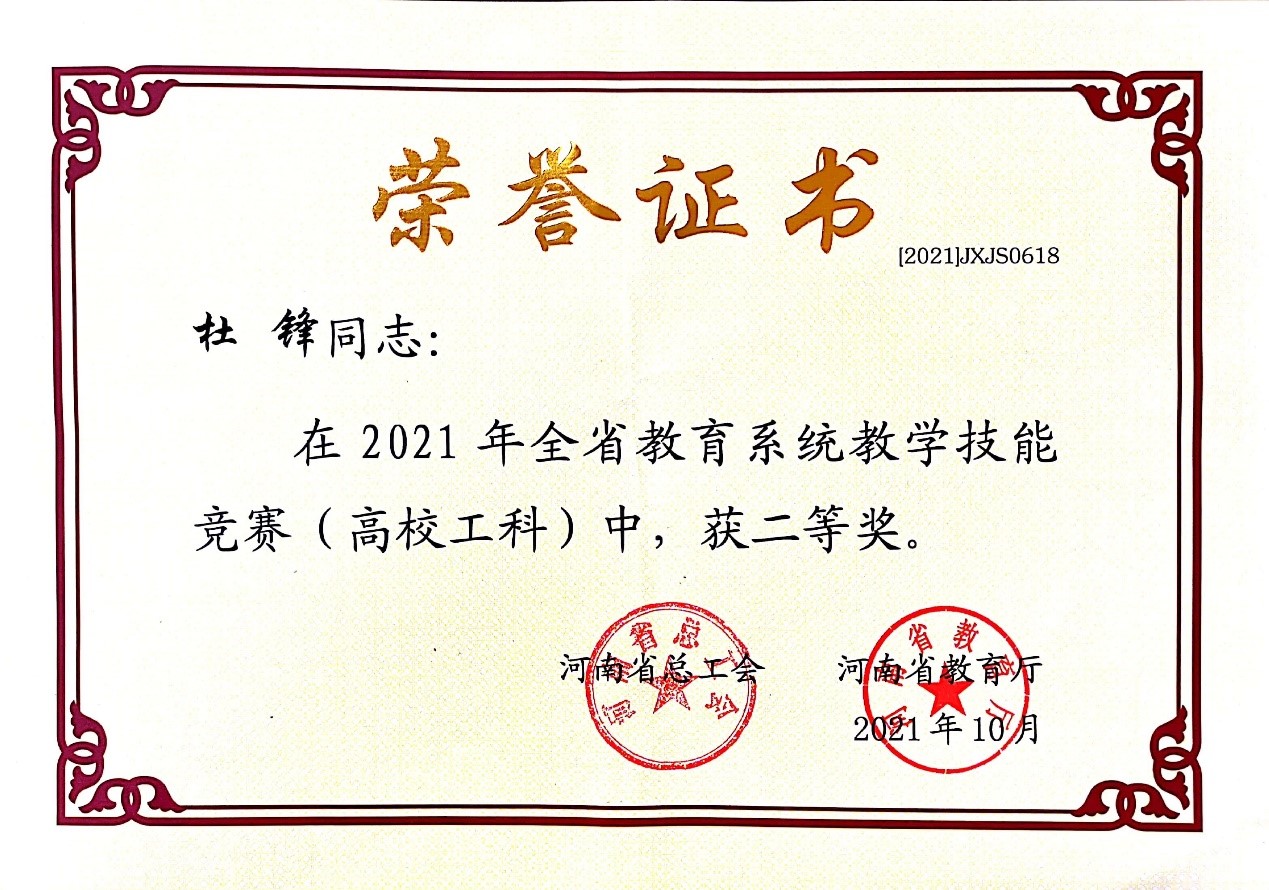 荣誉证书
[2021]JXJS0618
杜 锋同志:
在 2021 年全省教育系统教学技能
竞赛（高校工科）中，获二等奖。
河南省总工会
河南省教育厅
2021 年 10 月
河南省总工会
河南省教育厅